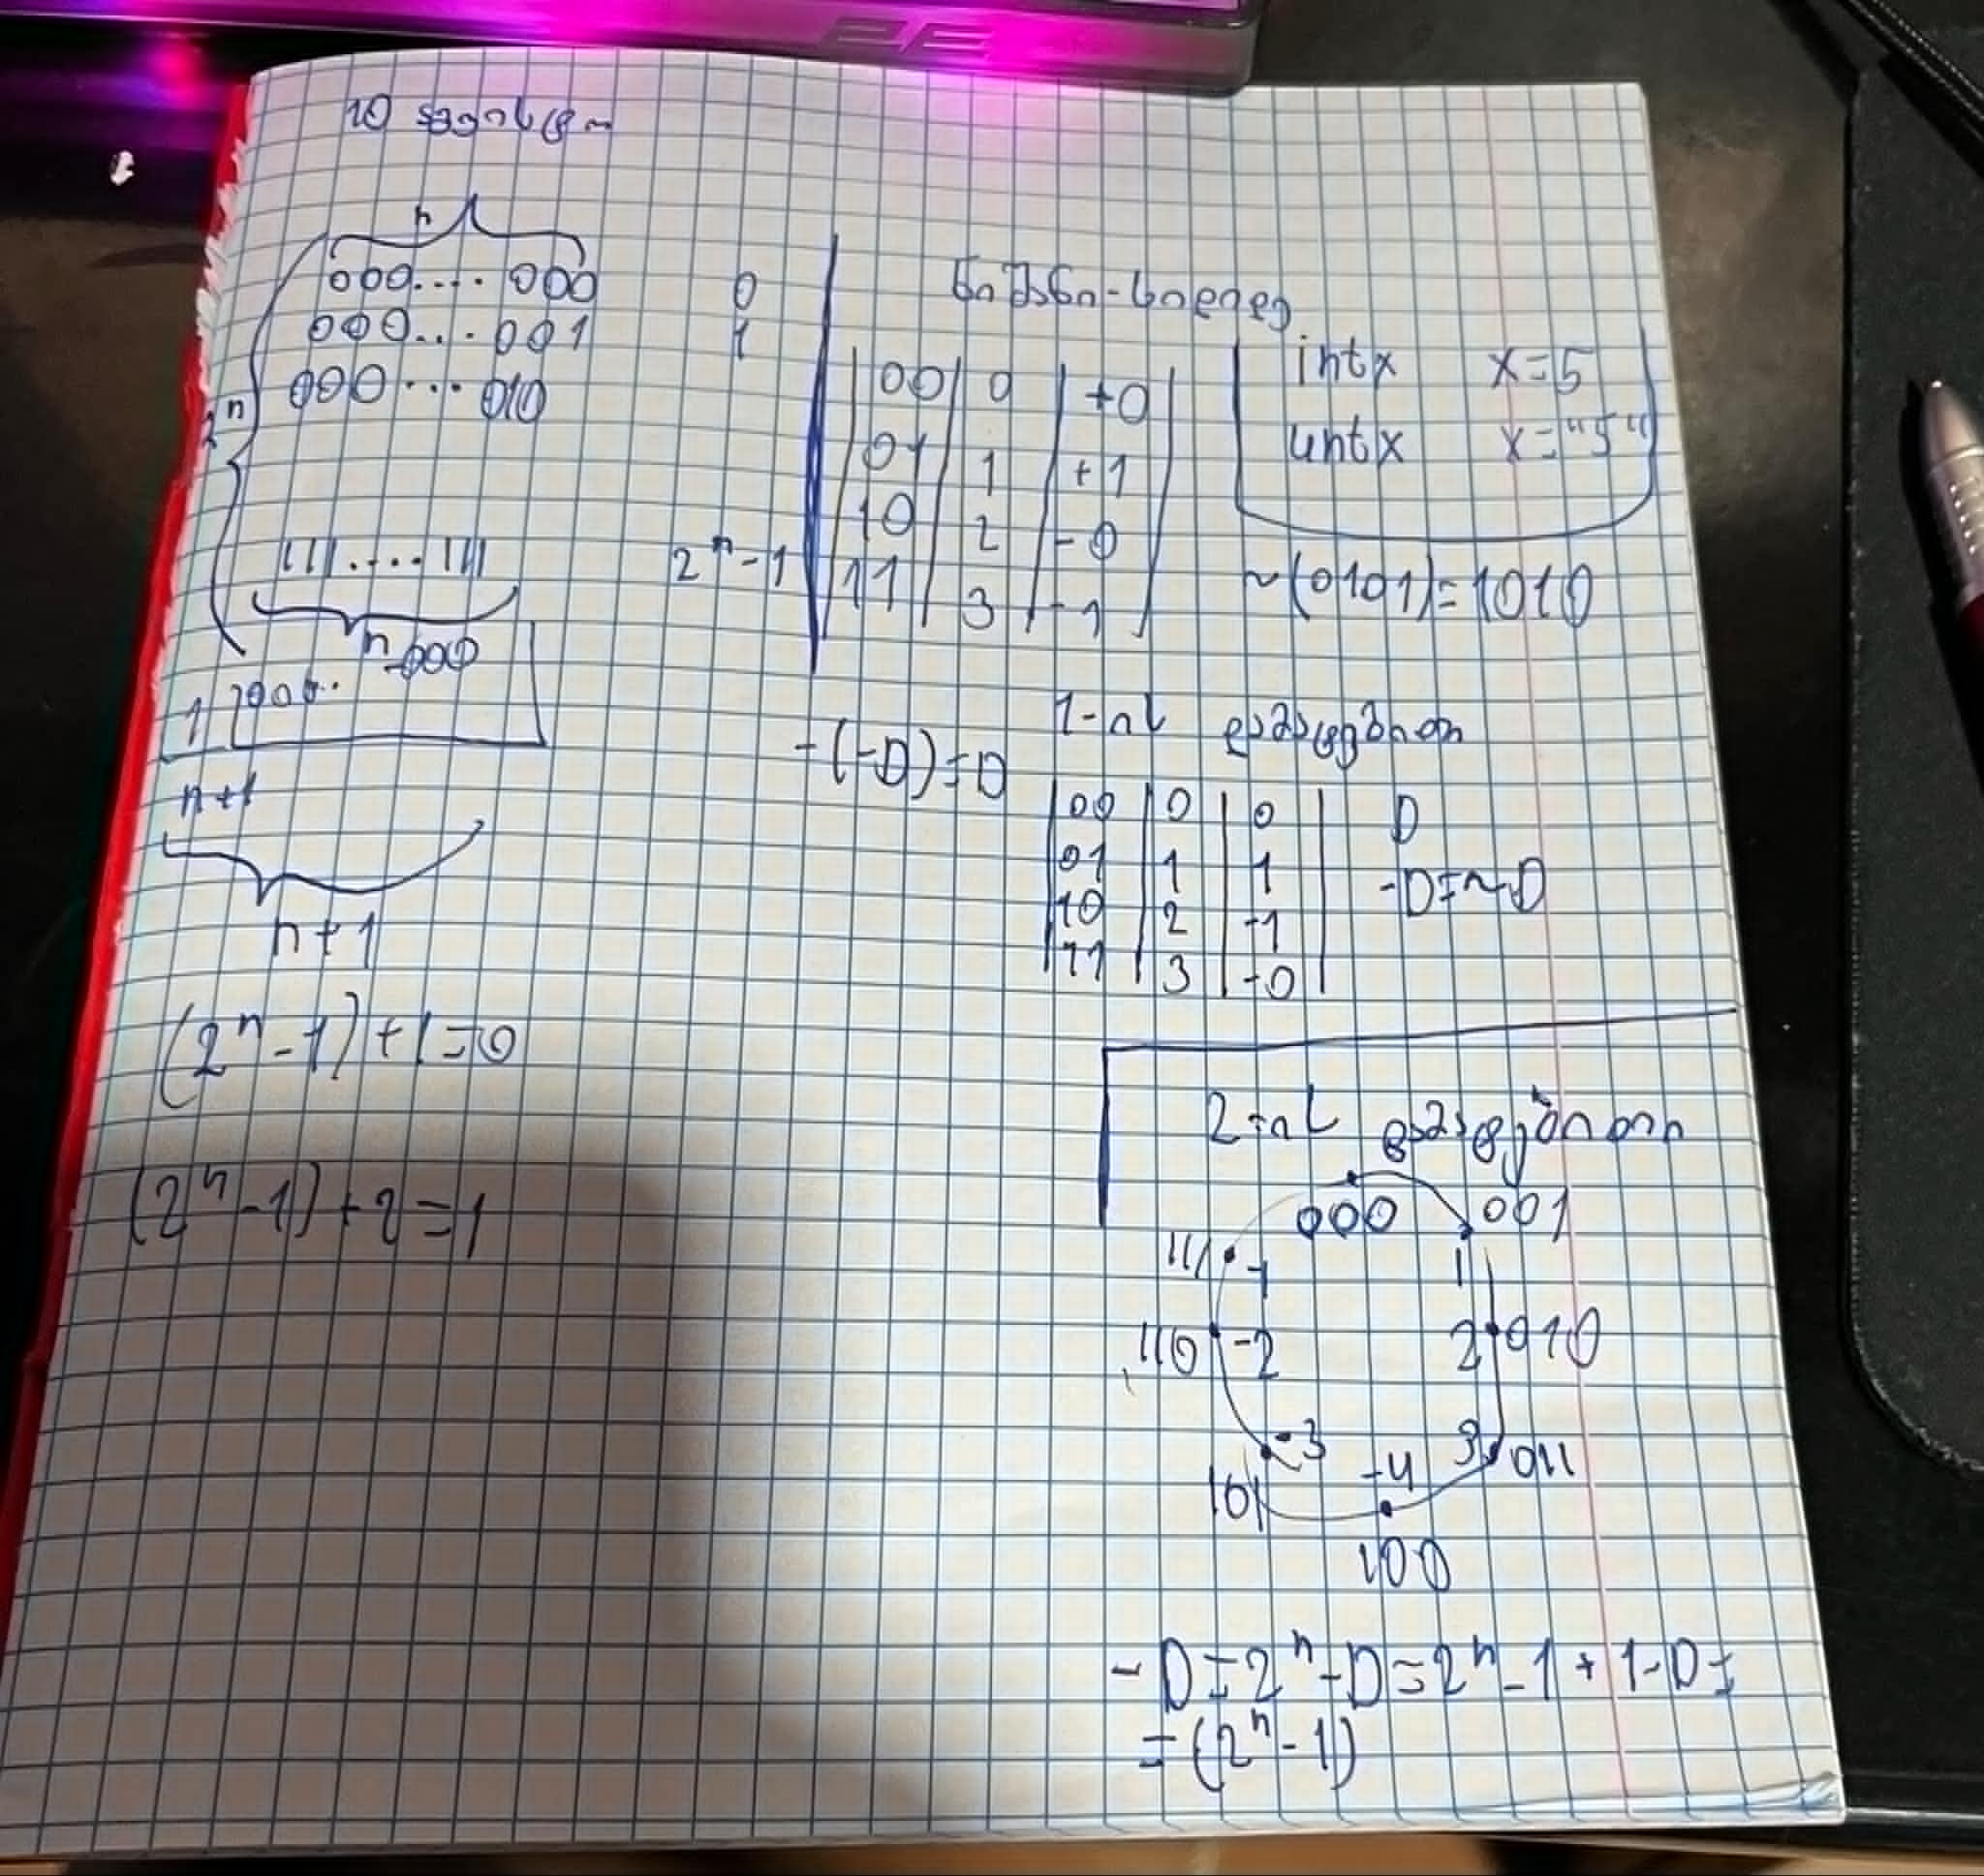 10
n
000.... 000 0
000... 001 1
000... 010
2ⁿ
111.....111 2ⁿ-1
n
1 000.. 000
n+1
n+1
(2ⁿ-1)+1=0
(2ⁿ-1)+2=1
ნიშნი-
00 0 +0
01 1 +1
10 2 -0
11 3 -1
intx x=5
untx x="5"
~(0101)=1010
-(-D)=D
1-ის დანამატებით
00 0 0
01 1 1
10 2 -1
11 3 -0
D
-D=~D
2-ის
000 001
111 -1 1
110 -2 2 010
-3 3 011
101 -4
100
-D=2ⁿ-D=2ⁿ-1+1-D=
=(2ⁿ-1)